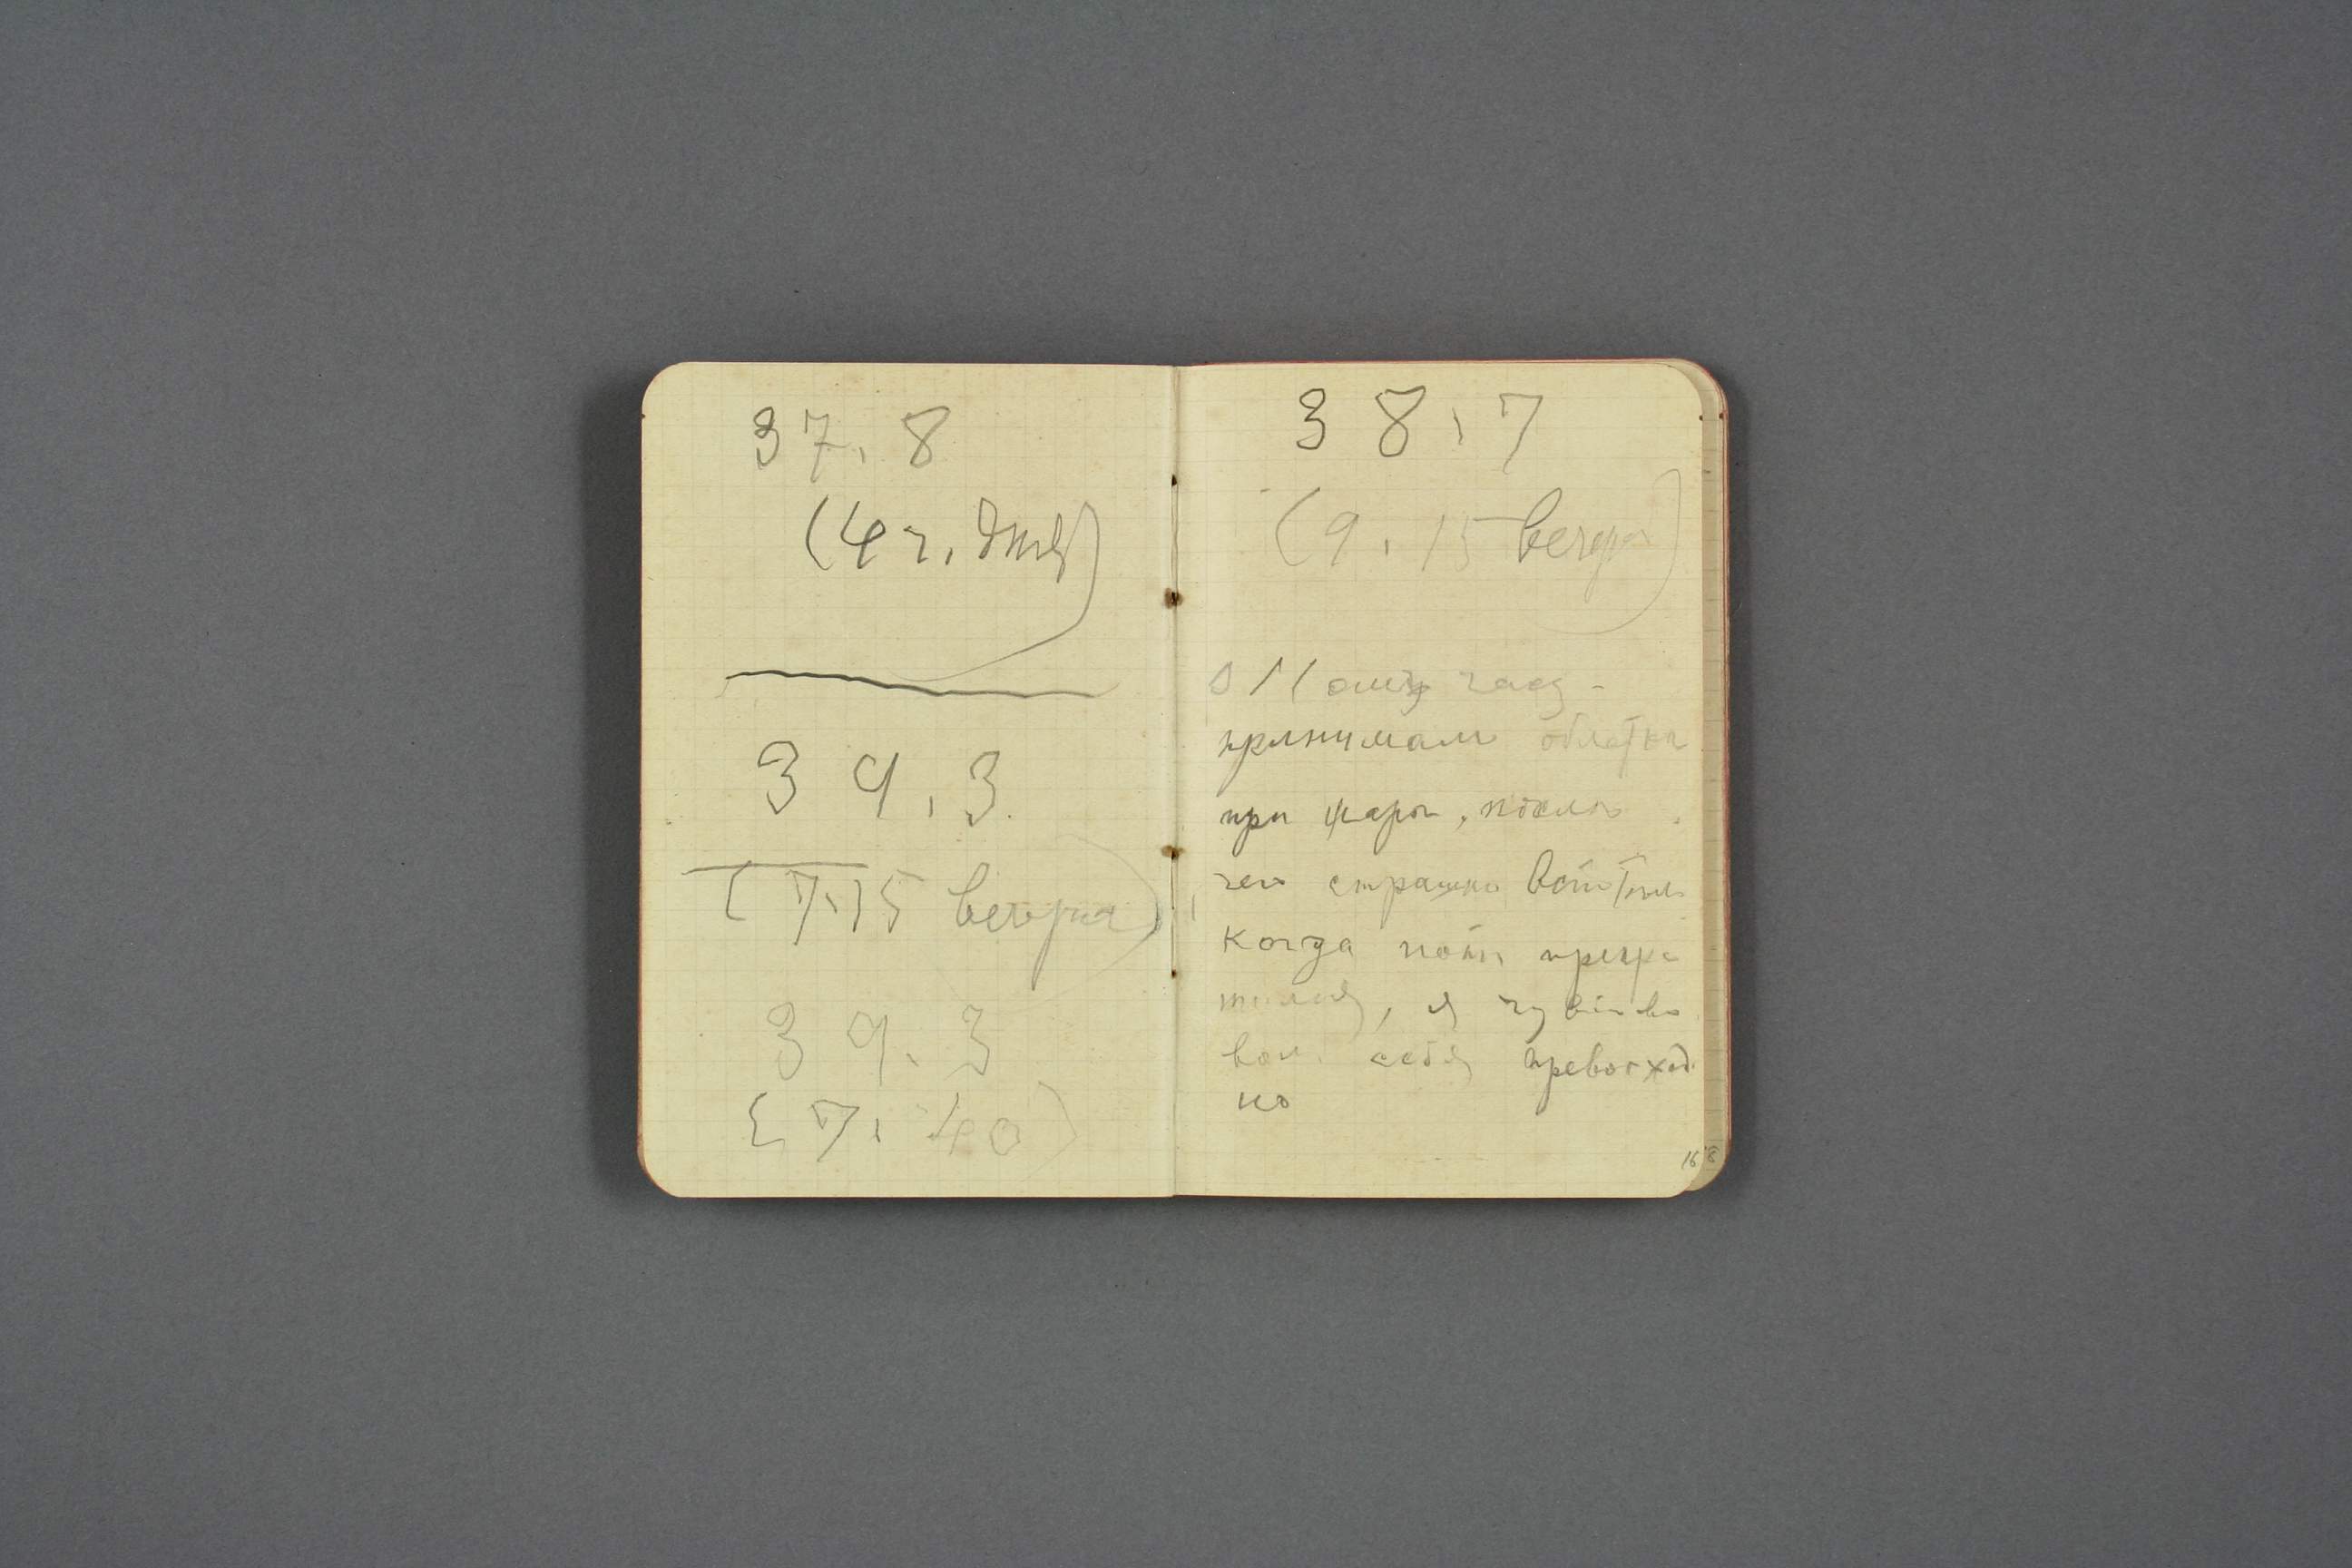 37,8
(4 ч. дня)
39,3
(7,15 вечера)
39,3
(7,40)
38,7
(9,15 вечера)
часу
принимал облатки
при жаре, после
чего страшно вспотел
когда пот прекра
тился, я чувство
вал себя превосход
но
16